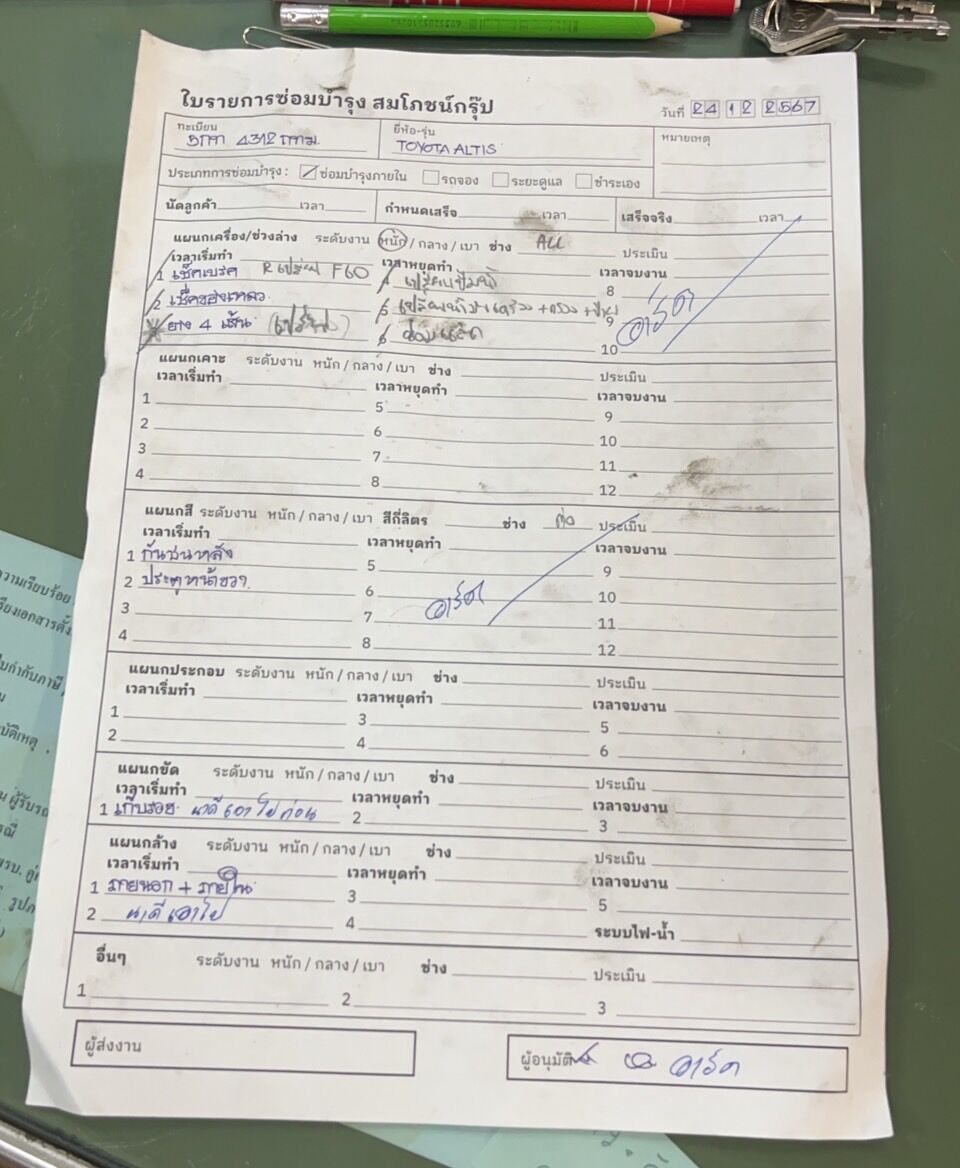 ใบรายการซ่อมบำรุง สมโภชน์กรุ๊ป
วันที่ 24 12 2567
ทะเบียน 4312 กทม.
ยี่ห้อ-รุ่น TOYOTA ALTIS
หมายเหตุ
ประเภทการซ่อมบำรุง : ซ่อมบำรุงภายใน รถจอง ระยะดูแล ชำระเอง
นัดลูกค้า เวลา กำหนดเสร็จ เวลา เสร็จจริง เวลา
แผนกเครื่อง/ช่วงล่าง ระดับงาน หนัก / กลาง / เบา ช่าง ALL ประเมิน
เวลาเริ่มทำ เวลาหยุดทำ เวลาจบงาน
1 เช็คเบรค R เปลี่ยน F60 4 เปลี่ยนปั๊มน้ำ 8
2 เช็คของเหลว 5 9
ยาง 4 เส้น 6 10
อาร์ต
แผนกเคาะ ระดับงาน หนัก / กลาง / เบา ช่าง ประเมิน
เวลาเริ่มทำ เวลาหยุดทำ เวลาจบงาน
1 5 9
2 6 10
3 7 11
4 8 12
แผนกสี ระดับงาน หนัก / กลาง / เบา สีกี่ลิตร ช่าง ประเมิน
เวลาเริ่มทำ เวลาหยุดทำ เวลาจบงาน
1 กันชนหลัง 5 9
2 ประตูหน้าขวา 6 10
3 7 อาร์ต 11
4 8 12
แผนกประกอบ ระดับงาน หนัก / กลาง / เบา ช่าง ประเมิน
เวลาเริ่มทำ เวลาหยุดทำ เวลาจบงาน
1 3 5
2 4 6
แผนกขัด ระดับงาน หนัก / กลาง / เบา ช่าง ประเมิน
เวลาเริ่มทำ เวลาหยุดทำ เวลาจบงาน
1 เก็บรอย นาดีเอาไปก่อน 2 3
แผนกล้าง ระดับงาน หนัก / กลาง / เบา ช่าง ประเมิน
เวลาเริ่มทำ เวลาหยุดทำ เวลาจบงาน
1 ภายนอก + ภายใน 3 5
2 นาดีเอาไป 4 ระบบไฟ-น้ำ
อื่นๆ ระดับงาน หนัก / กลาง / เบา ช่าง ประเมิน
1 2 3
ผู้ส่งงาน
ผู้อนุมัติ อาร์ต